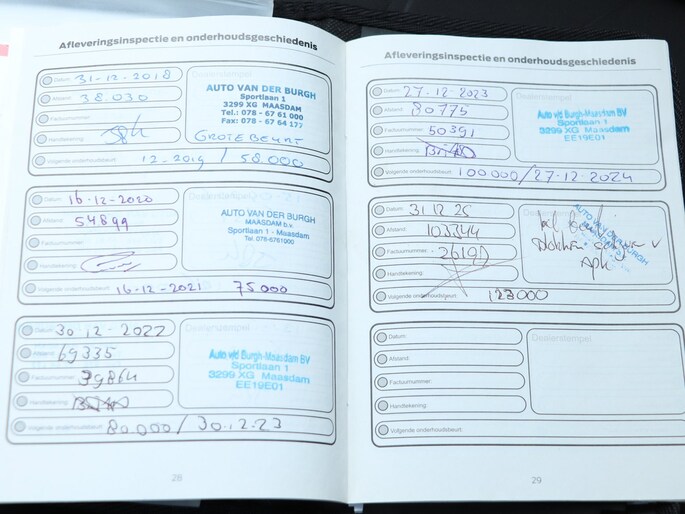 Afleveringsinspectie en onderhoudsgeschiedenis
Datum: 31-12-2018
Afstand: 38.030
Factuurnummer:
Handtekening:
Volgende onderhoudsbeurt: 12-2019 / 58.000
AUTO VAN DER BURGH
Sportlaan 1
3299 XG MAASDAM
Tel.: 078 - 67 61 000
Fax: 078 - 67 64 177
GROTE BEURT
Datum: 16-12-2020
Afstand: 54899
Factuurnummer:
Handtekening:
Volgende onderhoudsbeurt: 16-12-2021 75.000
AUTO VAN DER BURGH
MAASDAM b.v.
Sportlaan 1 - Maasdam
Tel. 078-6761000
Datum: 30-12-2022
Afstand: 69335
Factuurnummer: 39864
Handtekening:
Volgende onderhoudsbeurt: 80.000 / 30.12.23
Auto v/d Burgh-Maasdam BV
Sportlaan 1
3299 XG Maasdam
EE19E01
28
Afleveringsinspectie en onderhoudsgeschiedenis
Datum: 27-12-2023
Afstand: 80775
Factuurnummer: 50391
Handtekening:
Volgende onderhoudsbeurt: 100000/27-12-2024
Auto v/d Burgh-Maasdam BV
Sportlaan 1
3299 XG Maasdam
EE19E01
Datum: 31 12 25
Afstand: 103344
Factuurnummer:
Handtekening:
Volgende onderhoudsbeurt: 123000
AUTO VAN DER BURGH
APK
Datum:
Afstand:
Factuurnummer:
Handtekening:
Volgende onderhoudsbeurt:
Dealerstempel
29